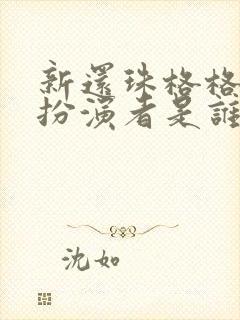 新還珠格格
扮演者是誰
沈如